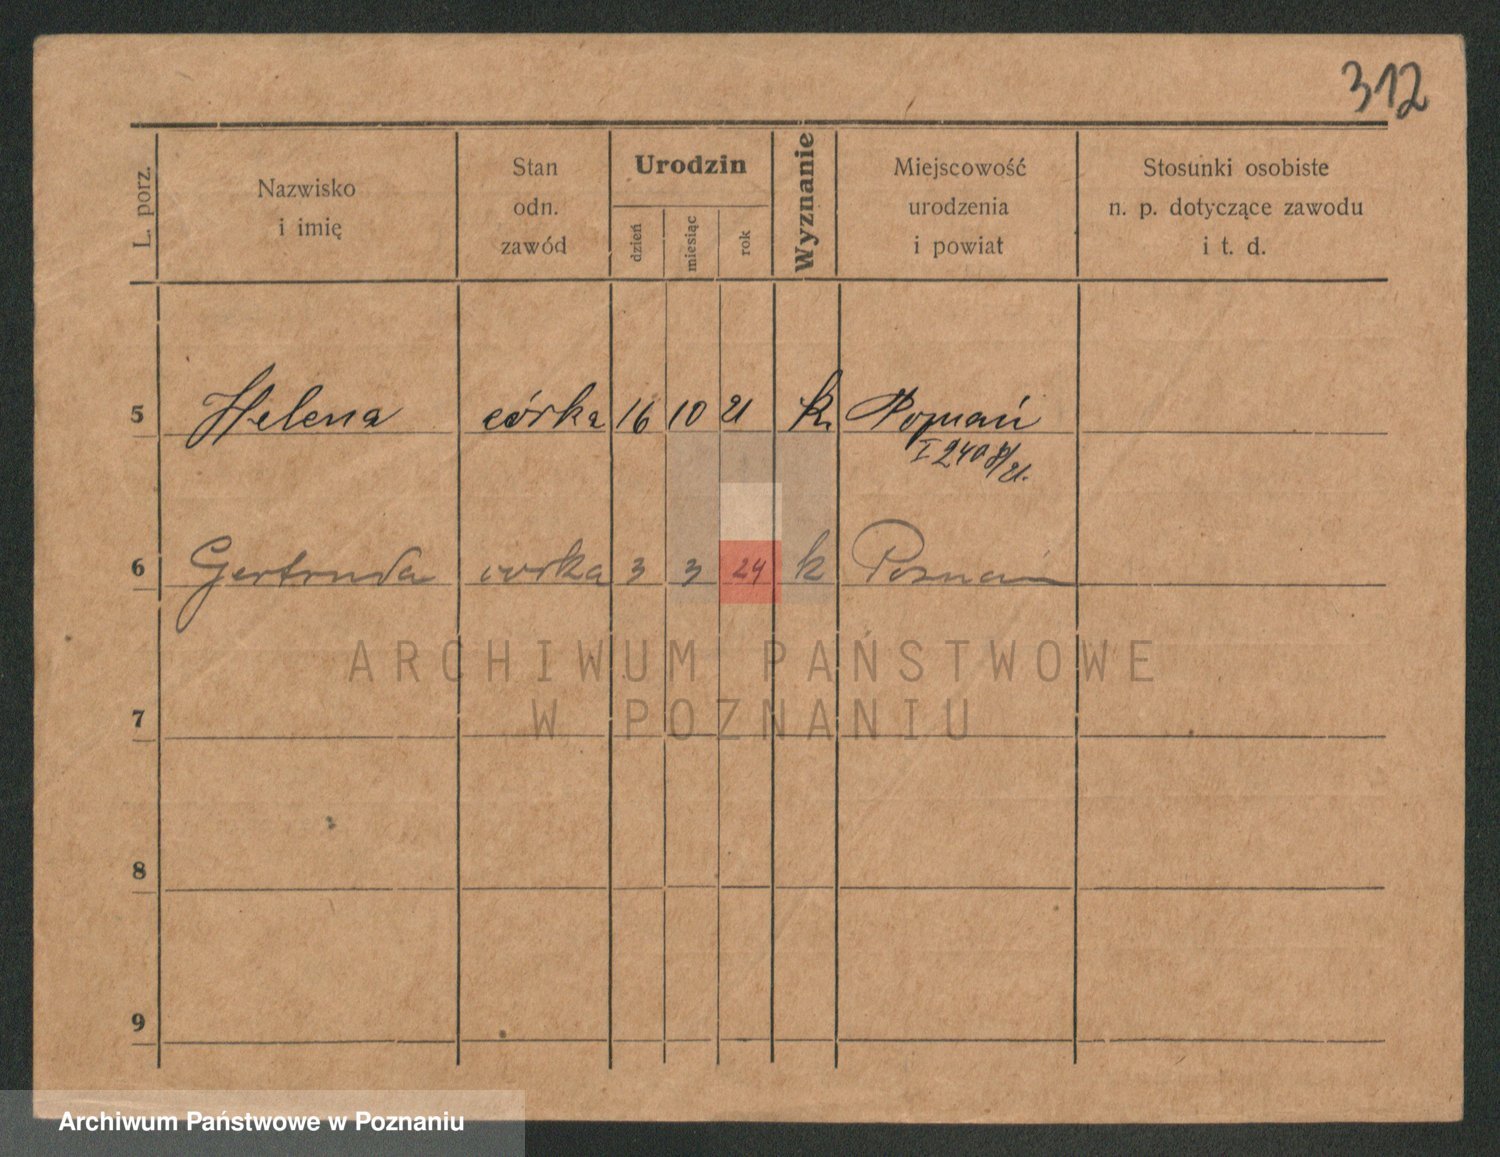 312
L. porz.
Nazwisko
i imię
Stan
odn.
zawód
Urodzin
dzień
miesiąc
rok
Wyznanie
Miejscowość
urodzenia
i powiat
Stosunki osobiste
n. p. dotyczące zawodu
i t. d.
5 Helena córka 16 10 21 k. Poznań
6 Gertruda córka 3 3 24 k Poznań
ARCHIWUM PAŃSTWOWE
W POZNANIU
7
8
9
Archiwum Państwowe w Poznaniu